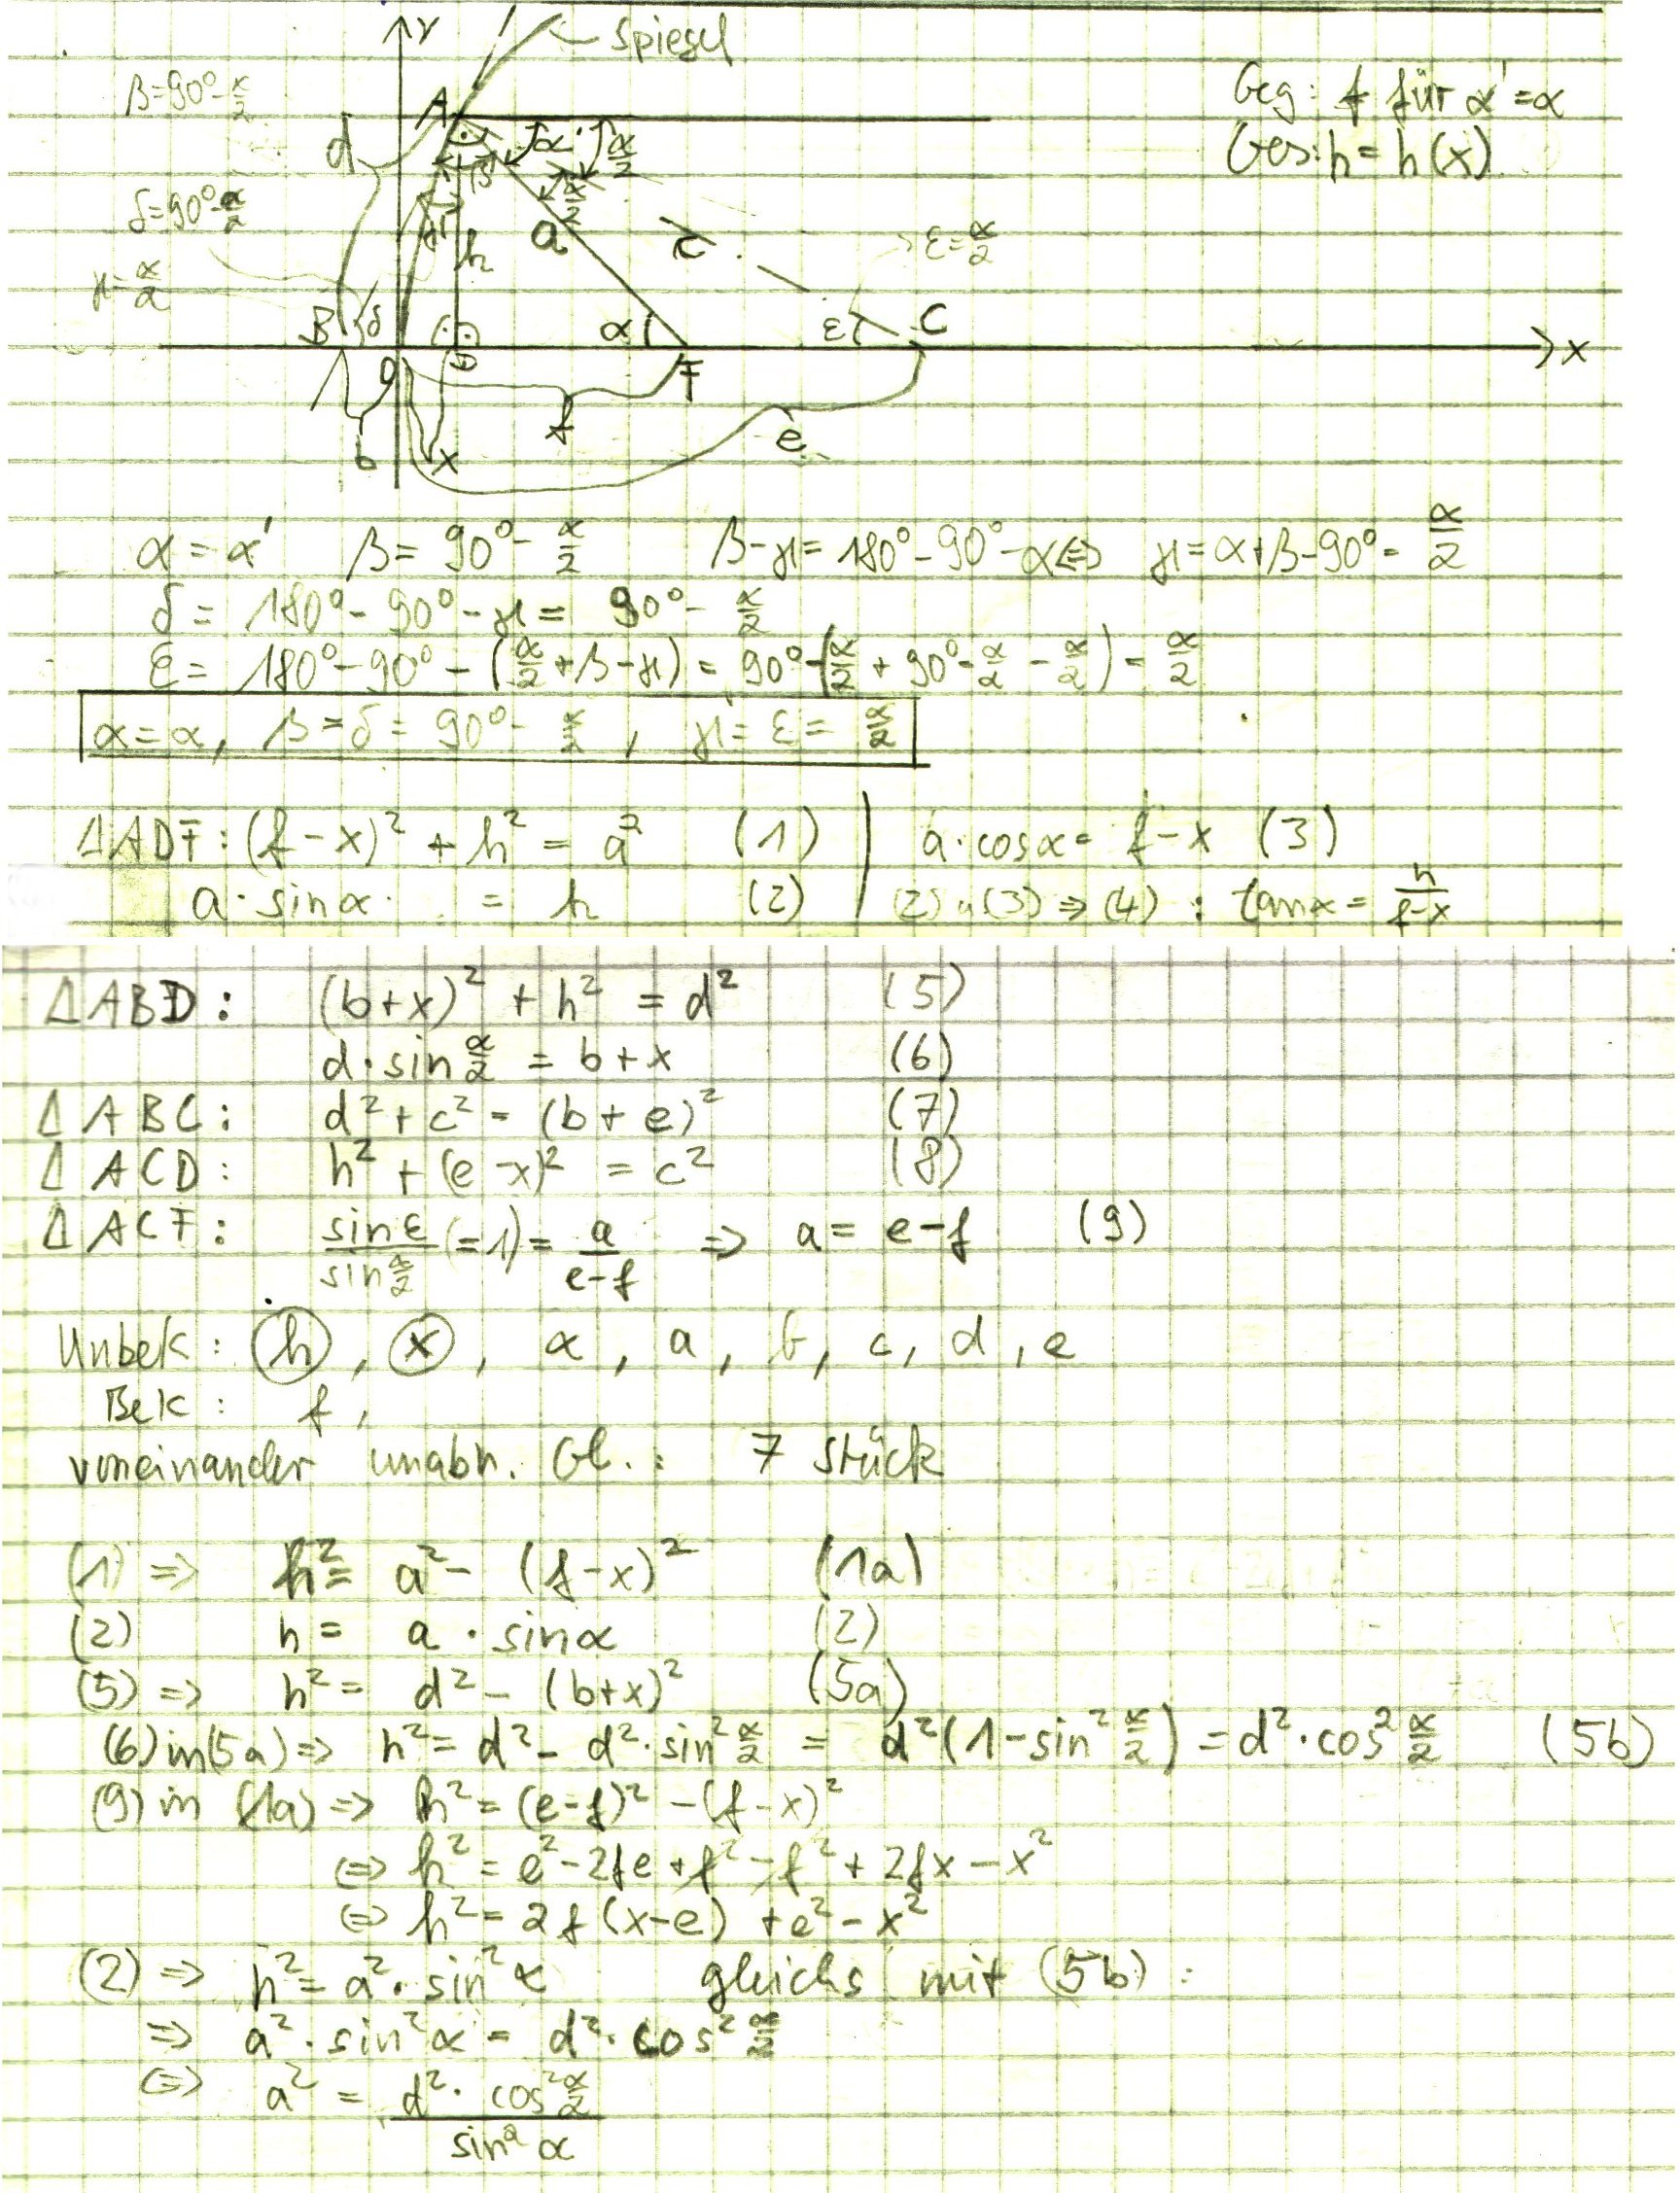 Y
Spiegel
β=90°-α/2
Geg: f für α'=α
Ges: h = h(x)
A
d
α'
α/2
β
δ=90°-α/2
α/2
γ
a
c
ε=α/2
h
γ=α/2
B
δ
α
ε
C
0
D
F
x
f
b
x
e
α = α' β = 90° - α/2 β-γ = 180° - 90° - α ⇔ γ = α+β-90° = α/2
δ = 180° - 90° - γ = 90° - α/2
ε = 180° - 90° - (α/2 + β - γ) = 90° - (α/2 + 90° - α/2 - α/2) = α/2
α = α, β = δ = 90° - α/2, γ = ε = α/2
ΔADF: (f-x)² + h² = a² (1) a·cosα = f-x (3)
a·sinα = h (2) (2) u (3) ⇒ (4): tanα = h/(f-x)
ΔABD: (b+x)² + h² = d² (5)
d·sin α/2 = b+x (6)
ΔABC: d² + c² = (b+e)² (7)
ΔACD: h² + (e-x)² = c² (8)
ΔACF: sinε/sin α/2 (=1) = a/(e-f) ⇒ a = e-f (9)
Unbek: h, x, α, a, b, c, d, e
Bek: f,
voneinander unabh. Gl.: 7 Stück
(1) ⇒ h² = a² - (f-x)² (1a)
(2) h = a·sinα (2)
(5) ⇒ h² = d² - (b+x)² (5a)
(6) in (5a) ⇒ h² = d² - d²·sin² α/2 = d²(1-sin² α/2) = d²·cos² α/2 (5b)
(9) in (1a) ⇒ h² = (e-f)² - (f-x)²
⇔ h² = e² - 2fe + f² - f² + 2fx - x²
⇔ h² = 2f(x-e) + e² - x²
(2) ⇒ h² = a²·sin²α gleichs mit (5b):
⇒ a²·sin²α = d²·cos² α/2
⇔ a² = d²·cos² α/2 / sin²α